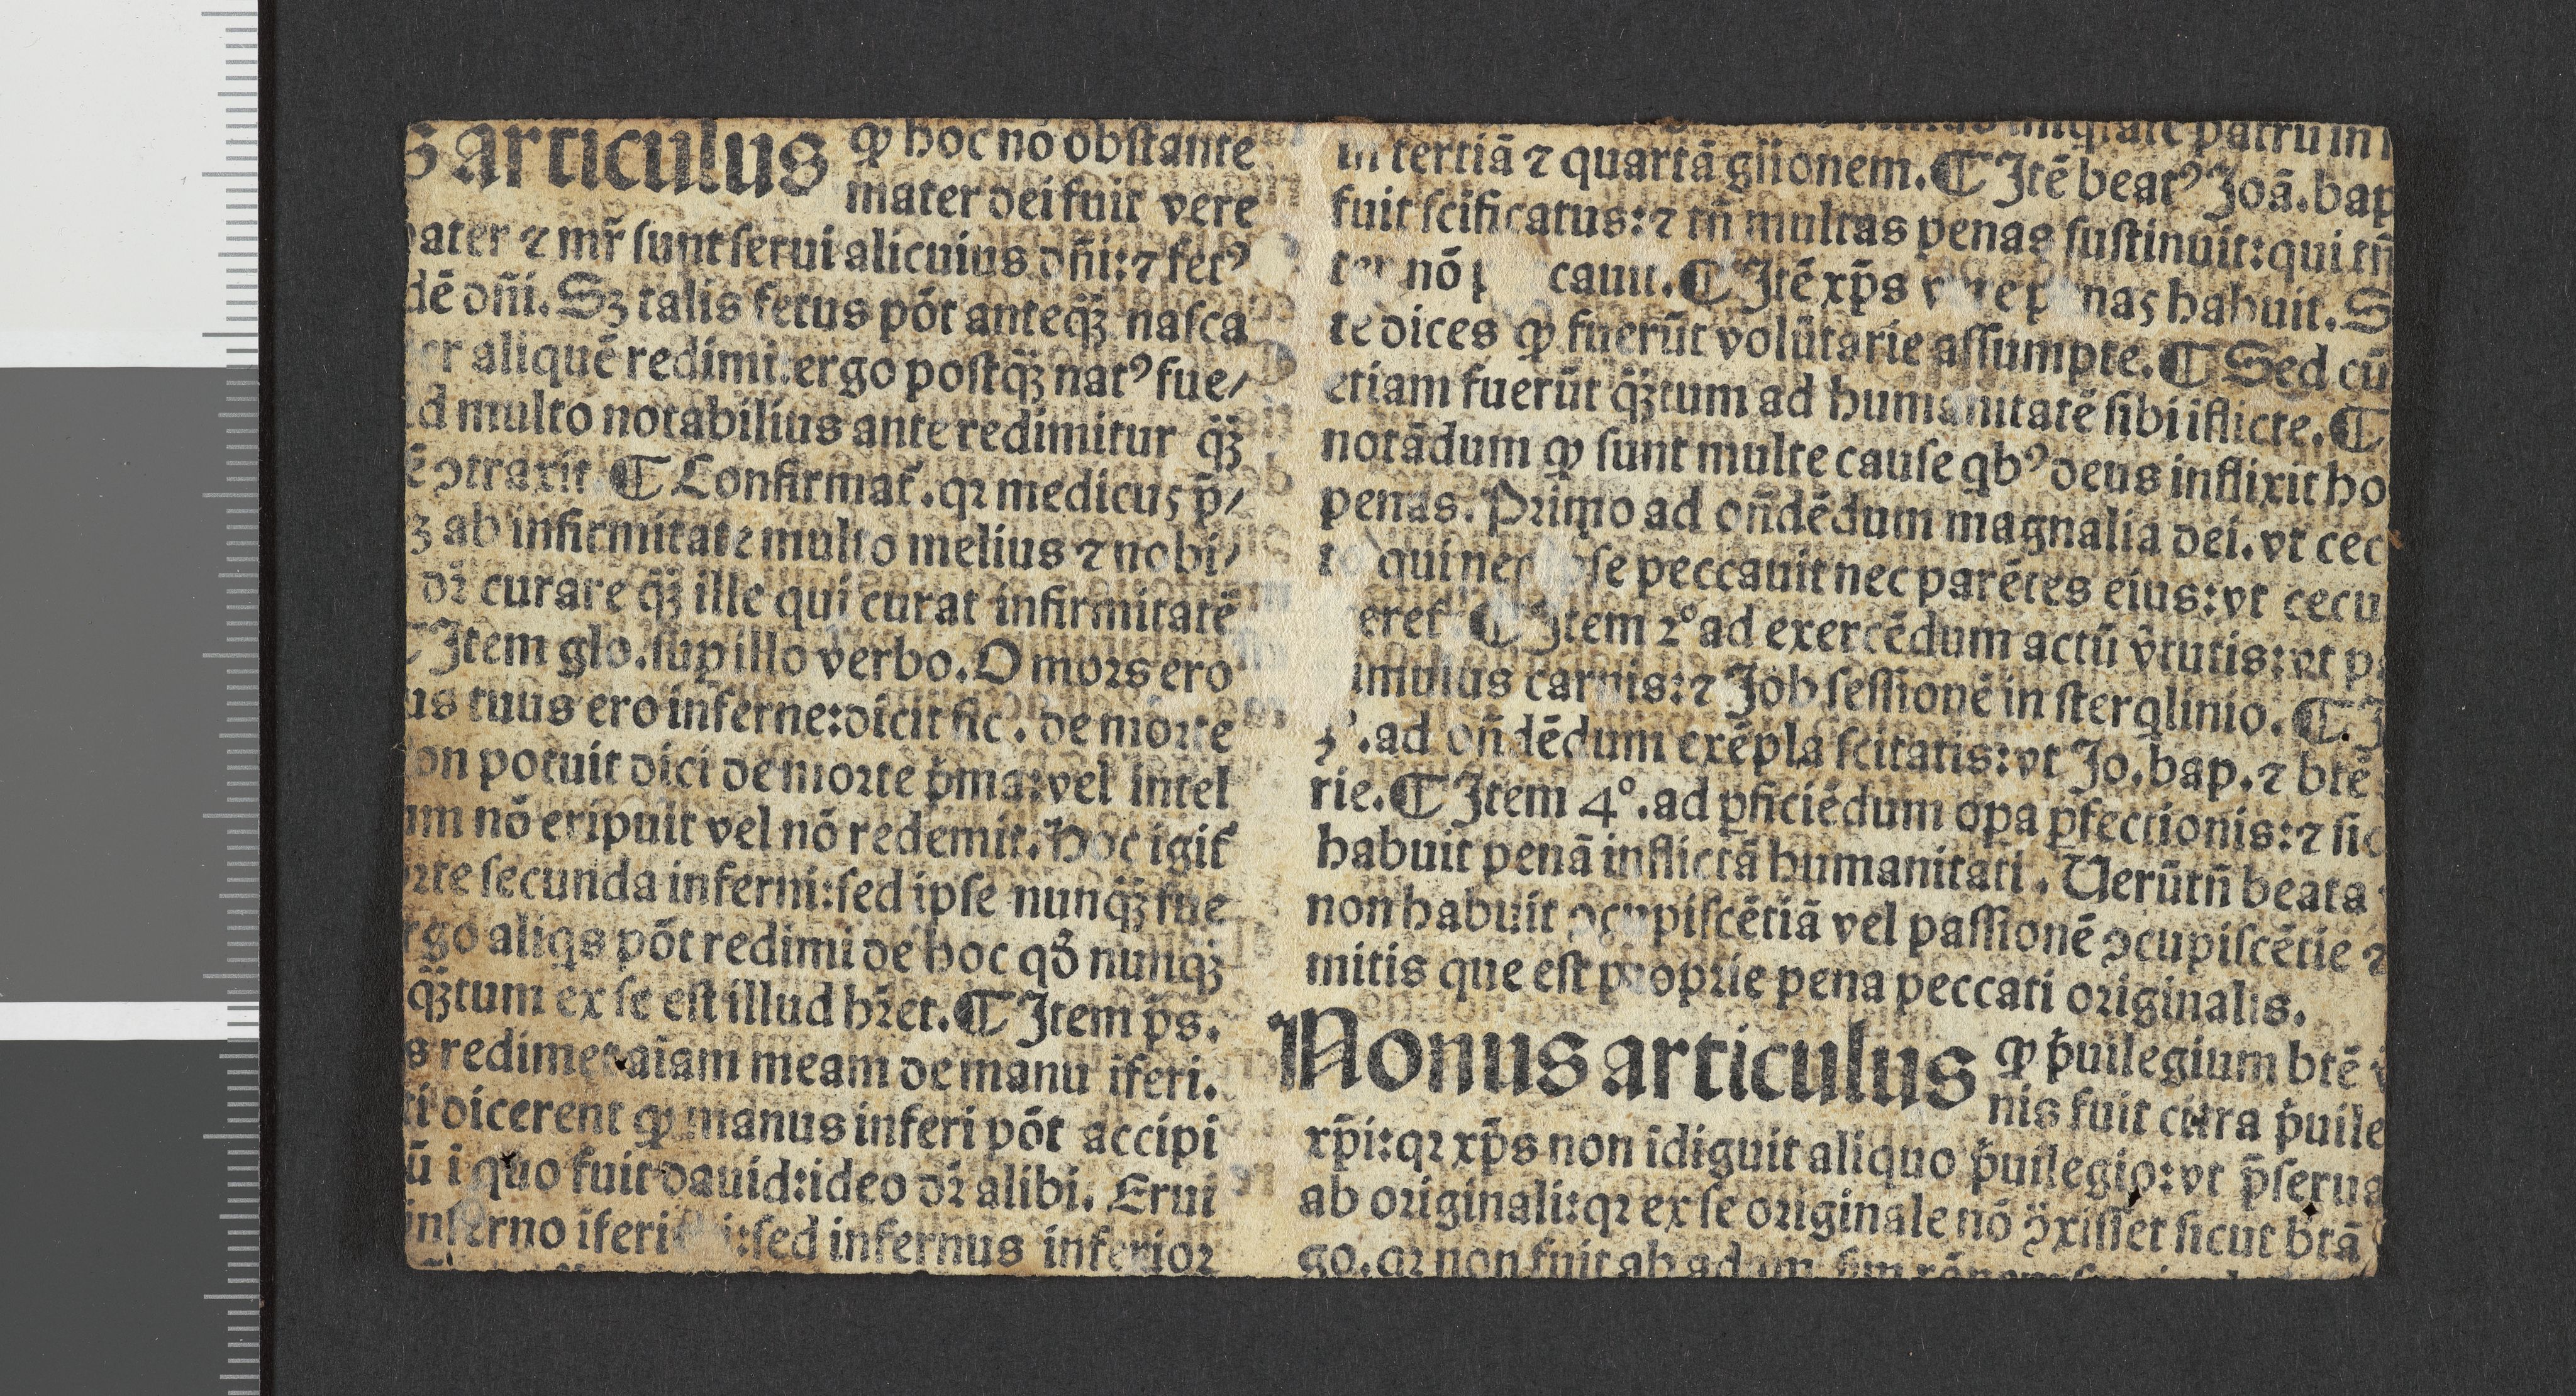 s articulus ꝙ hoc nō obstante
mater dei fuit vere
pater ⁊ mr̄ sunt serui alicuius dn̄i: ⁊ fetꝰ
dē dn̄i. Sꝫ talis fetus pōt anteqꝫ̄ nasca
er aliquē redimi: ergo postqꝫ̄ natꝰ fue/
d multo notabilius ante redimitur qꝫ̄
ē ꝯtraxit. ¶ Confirmat̄. qꝛ medicus p̄/
ꝫ ab infirmitate multo melius ⁊ nobi/
dꝛ̄ curare qꝫ̄ ille qui curat infirmitatē
¶ Item glo. sup̱ illo verbo. O mors ero
us tuus ero inferne: dicit sic. de morte
on potuit dici de morte p̄ma: vel intel
um nō eripuit vel nō redemit. Hoc igit̄
rte secunda inferni: sed ipse nunqꝫ̄ fue
rgo aliqs pōt redimi de hoc qd̄ nunqꝫ̄
qꝫ̄tum ex se est illud hr̄et. ¶ Item ps̄.
s redimet aīam meam de manu īferi.
ti dicerent ꝙ manus inferi pōt accipi
ū i quo fuit dauid: ideo dꝛ̄ alibi. Erui
inferno īferi sed infernus inferior
patrū in
in tertiā ⁊ quartā gn̄ionem. ¶ Itē beatꝰ Joā. bap
fuit sc̄ificatus: ⁊ tn̄ multas penas sustinuit: qui tn̄
nō cauit. ¶ Itē xp̄s nas habuit. S
te dices ꝙ fuerūt volūtarie assumpte. ¶ Sed cū
etiam fuerūt qꝫ̄tum ad humanitatē sibi īflicte. ¶
notādum ꝙ sunt multe cause qbꝰ deus inflixit ho
penas. Primo ad on̄dēdum magnalia dei. vt cec
qui nec se peccauit nec parētes eius: vt cecu
eret̄. ¶ Item 2º ad exercēdum actū v̄tutis: vt p
imulus carnis: ⁊ Job sessionē in sterqlinio. ¶ I
3º. ad on̄dēdum exēpla sc̄itatis: vt Jo. bap. ⁊ btē
rie. ¶ Item 4º. ad ꝑficiēdum oꝑa ꝑfectionis: ⁊ sic
habuit penā inflictā humanitati. Uerūtn̄ beata
non habuit ꝯcupiscētiā vel passionē ꝯcupiscētie ⁊
mitis que est proprie pena peccati originalis.
Nonus articulus ꝙ p̄uilegium btē
nis fuit citra p̄uile
xp̄i: qꝛ xp̄s non īdiguit aliquo p̄uilegio: vt p̄serua
ab originali: qꝛ ex se originale nō ꝯ̄xisset sicut btā
go. qꝛ non fuit ab adam